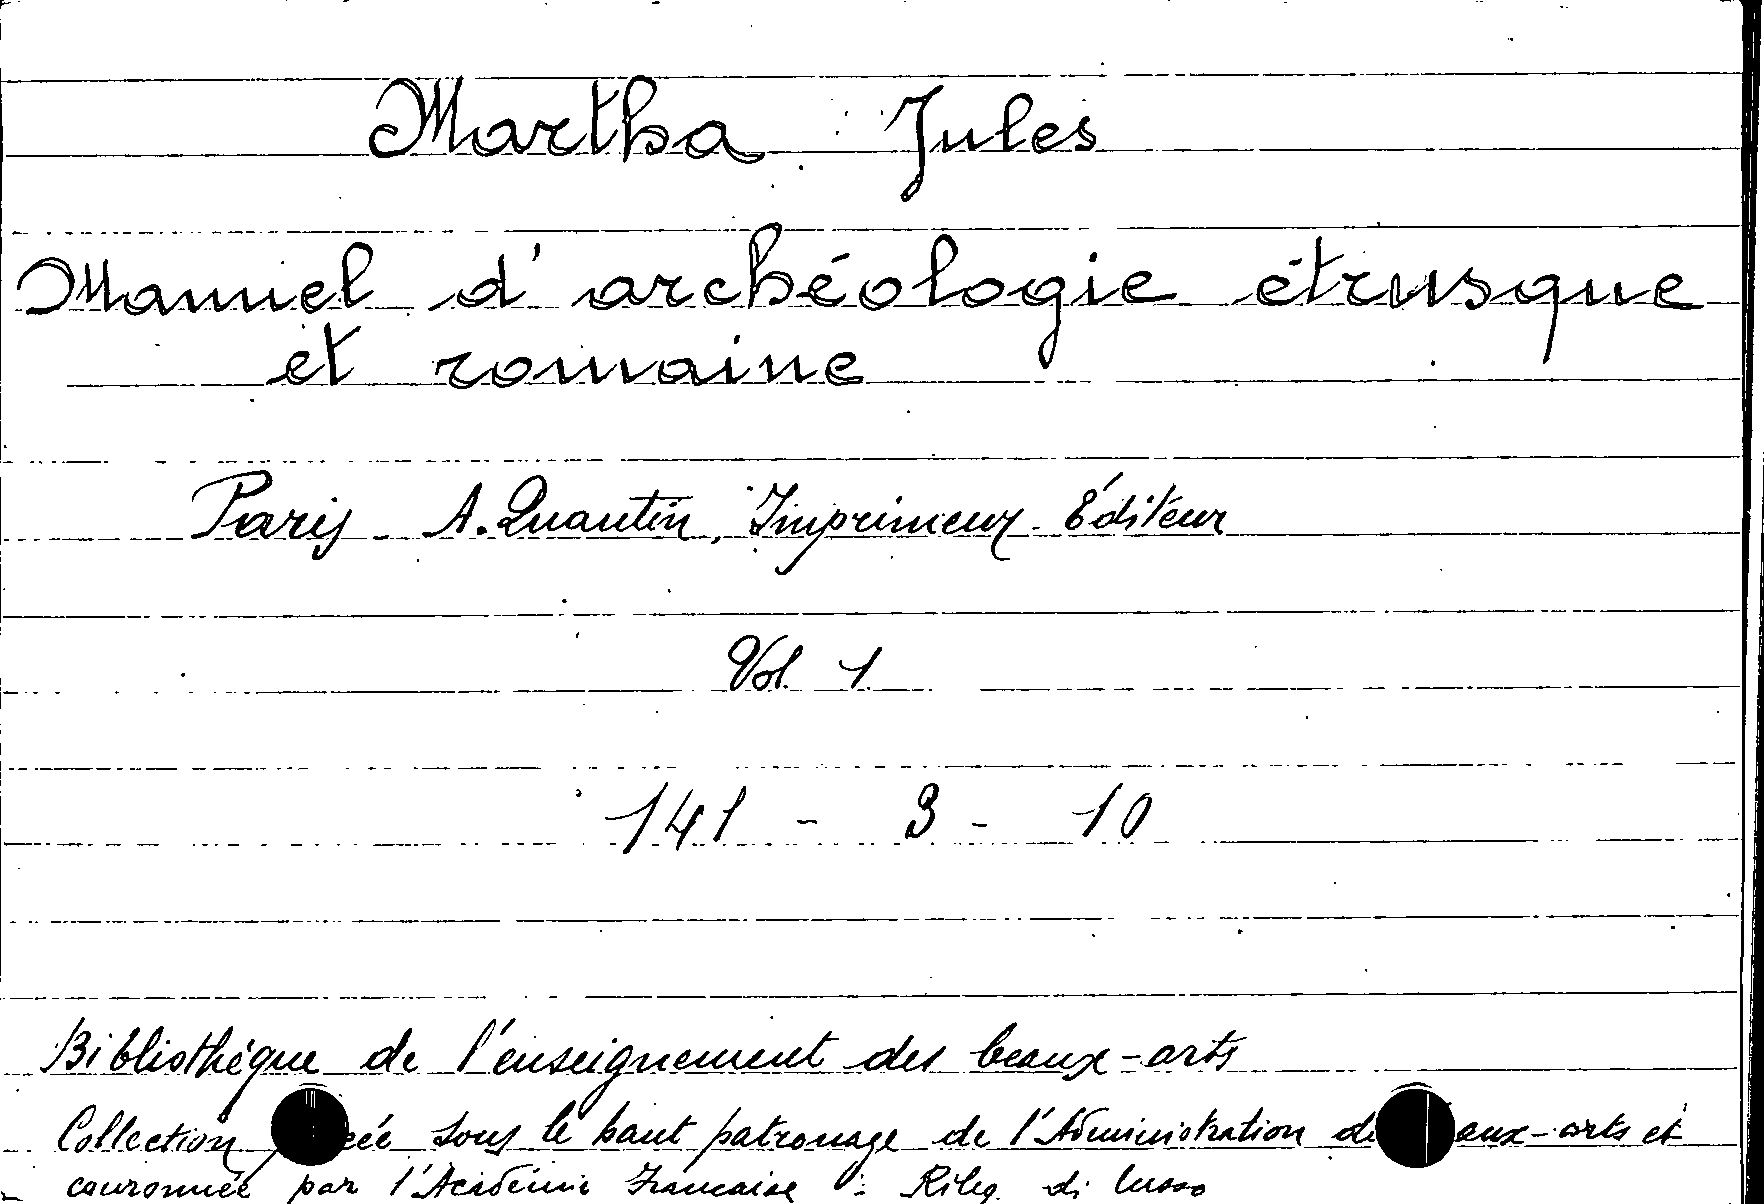 Martha Jules
Manuel d'archéologie étrusque
et romaine
Paris - A. Quantin, Imprimeur-Éditeur
Vol. 1
141 - 3 - 10
Bibliothéque de l'enseignement des beaux-arts
Collection sous le haut patronage de l'Administration aux-arts et
couronnée par l'Académie Francaise - Rileg. di lusso